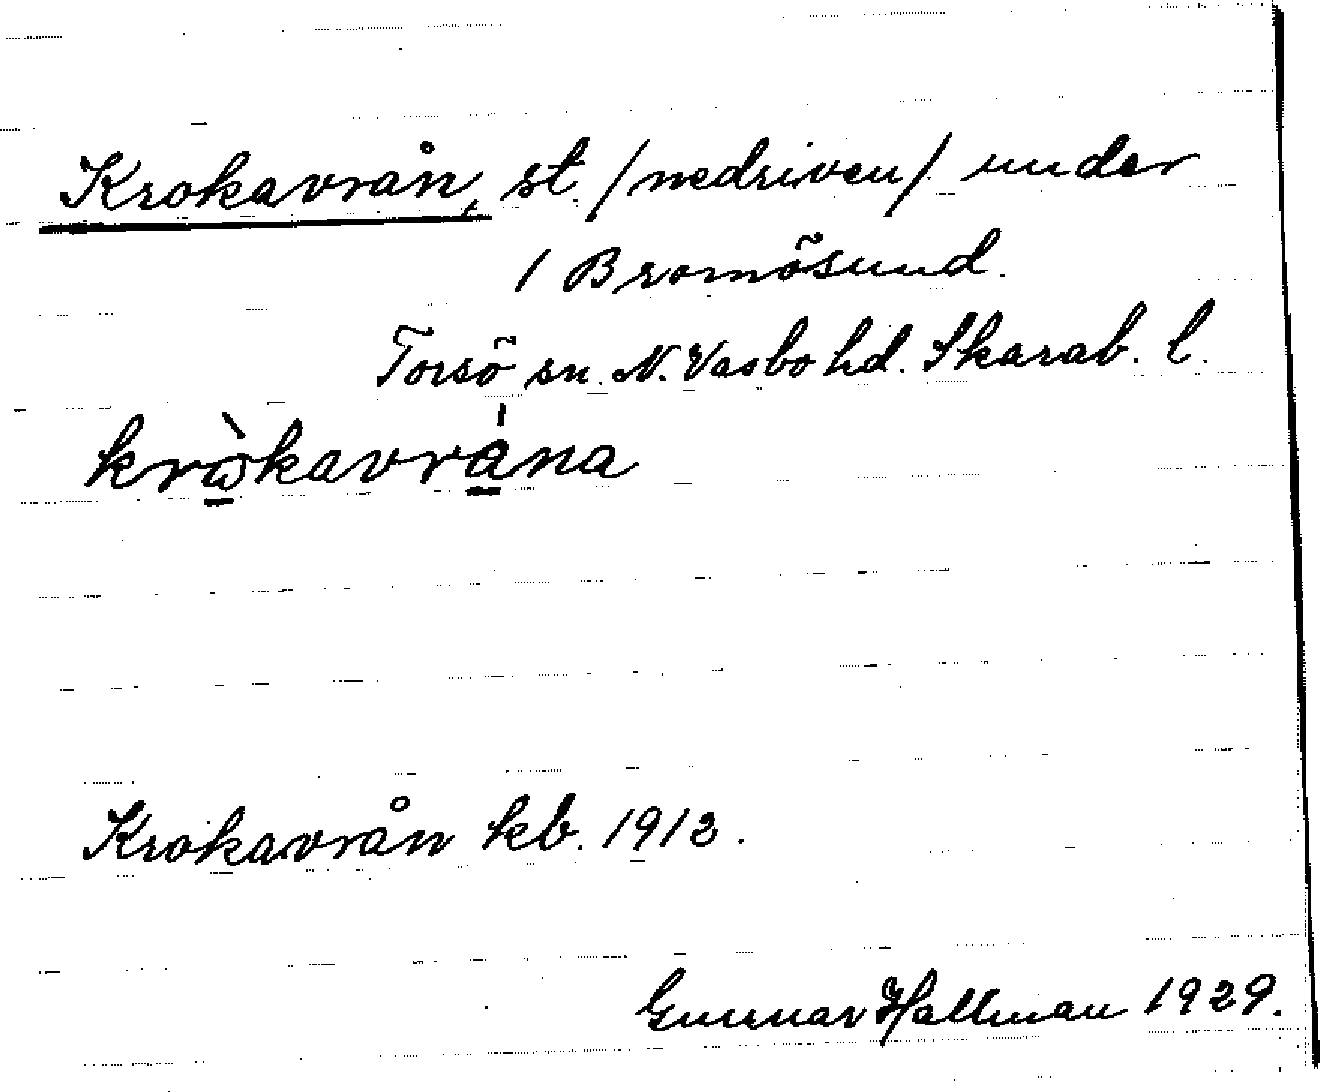 Krokavrån, st. /nedriven/ under
1 Bromösund.
Torsö sn. N. Vasbo hd. Skarab. l.
krὼkavrána
Krokavrån kb. 1912.
Gunnar Hallman 1929.